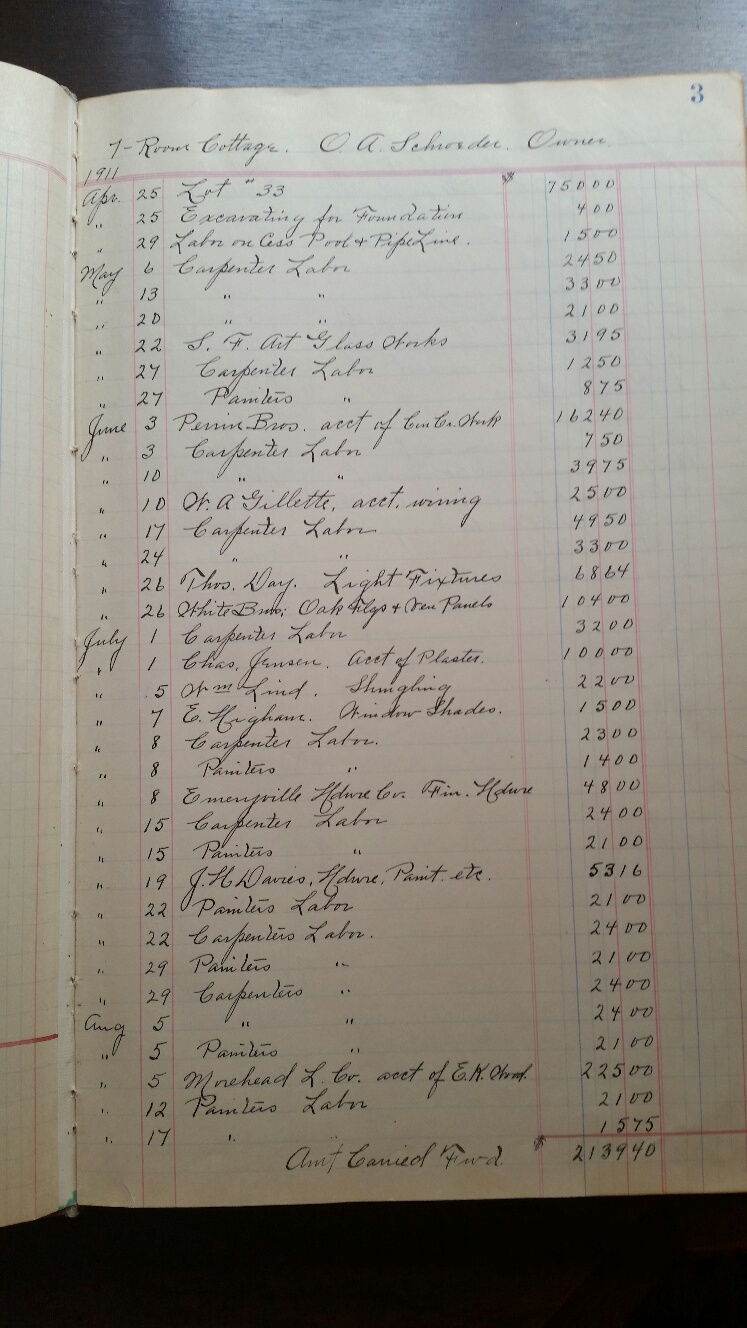 3
7-Room Cottage. O. A. Schroeder. Owner.
1911
Apr. 25 Lot #33 $ 750 00
" 25 Excavating for Foundation 4 00
" 29 Labor on Cess Pool & Pipe Line. 15 00
May 6 Carpenter Labor 24 50
" 13 " " 33 00
" 20 " " 21 00
" 22 S. F. Art Glass Works 31 95
" 27 Carpenter Labor 12 50
" 27 Painters " 8 75
June 3 Perrin Bros. acct of Con Cr. Work 162 40
" 3 Carpenter Labor 7 50
" 10 " " 39 75
" 10 W. A Gillette, acct. wiring 25 00
" 17 Carpenter Labor 49 50
" 24 " " 33 00
" 26 Thos. Day. Light Fixtures 68 64
" 26 White Bros; Oak Flgs & Ven Panels 104 00
July 1 Carpenter Labor 32 00
" 1 Chas. Jensen. Acct of Plaster. 100 00
" 5 Wm Lind. Shingling 22 00
" 7 E. Higham. Window Shades. 15 00
" 8 Carpenter Labor. 23 00
" 8 Painters " 14 00
" 8 Emeryville Hdwre Co. Fin. Hdwre 48 00
" 15 Carpenter Labor 24 00
" 15 Painters " 21 00
" 19 J. H Davies, Hdwre, Paint. etc. 53 16
" 22 Painters Labor 21 00
" 22 Carpenters Labor. 24 00
" 29 Painters " 21 00
" 29 Carpenters " 24 00
Aug 5 " " 24 00
" 5 Painters " 21 00
" 5 Morehead L. Co. acct of E. K. Wood. 225 00
" 12 Painters Labor 21 00
" 17 " " 15 75
Amt Carried Fwd. $ 2139 40